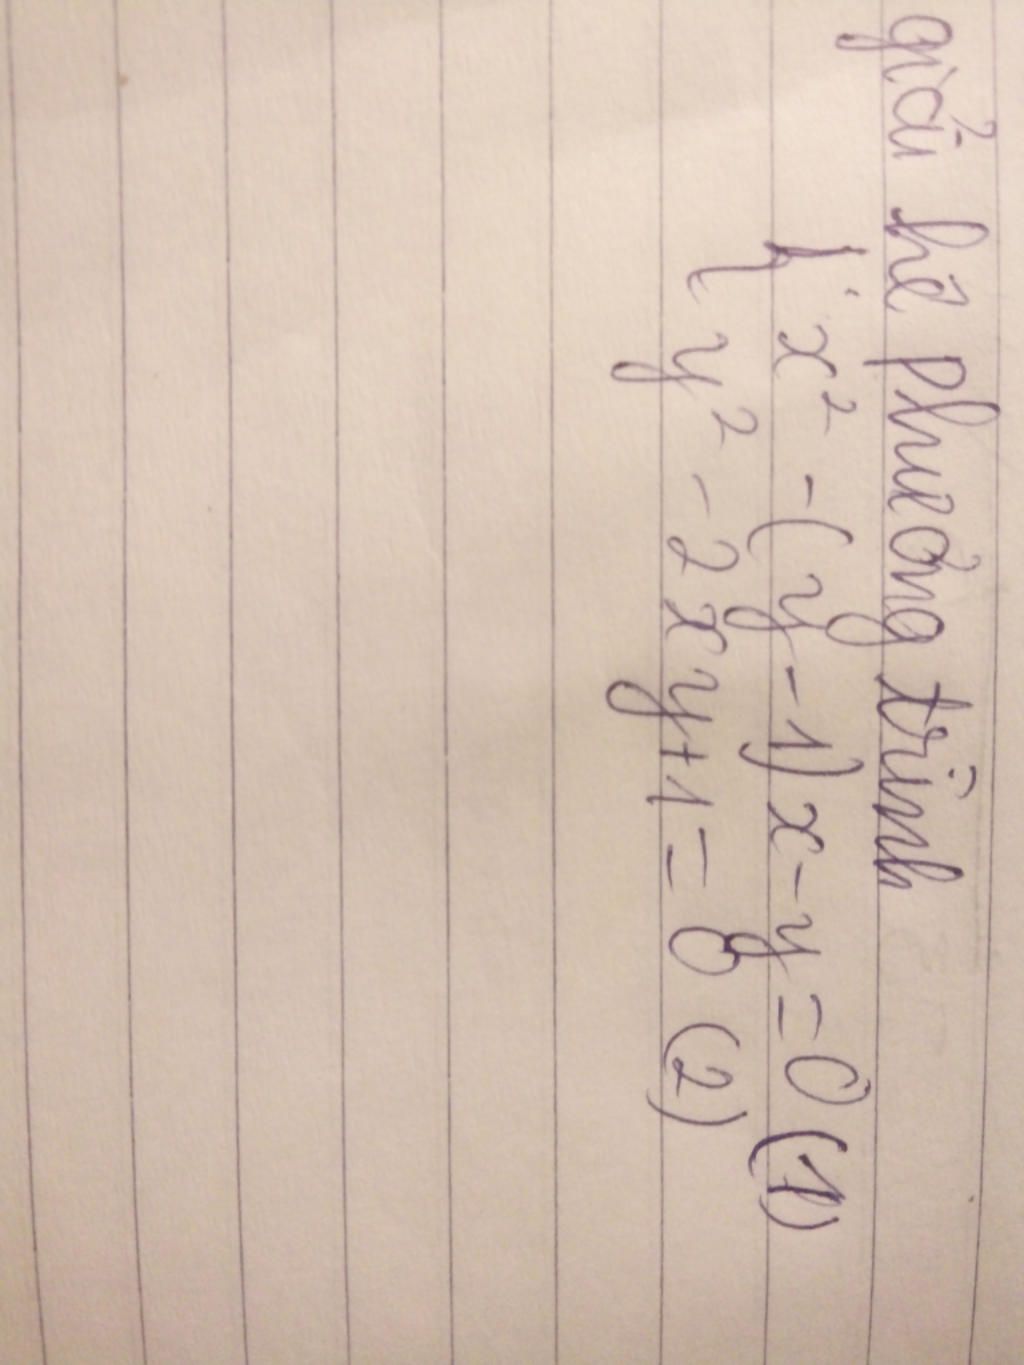 giải hê phương trình
{ x² - (y - 1) x - y = 0 (1)
y² - 2xy + 1 = 0 (2)